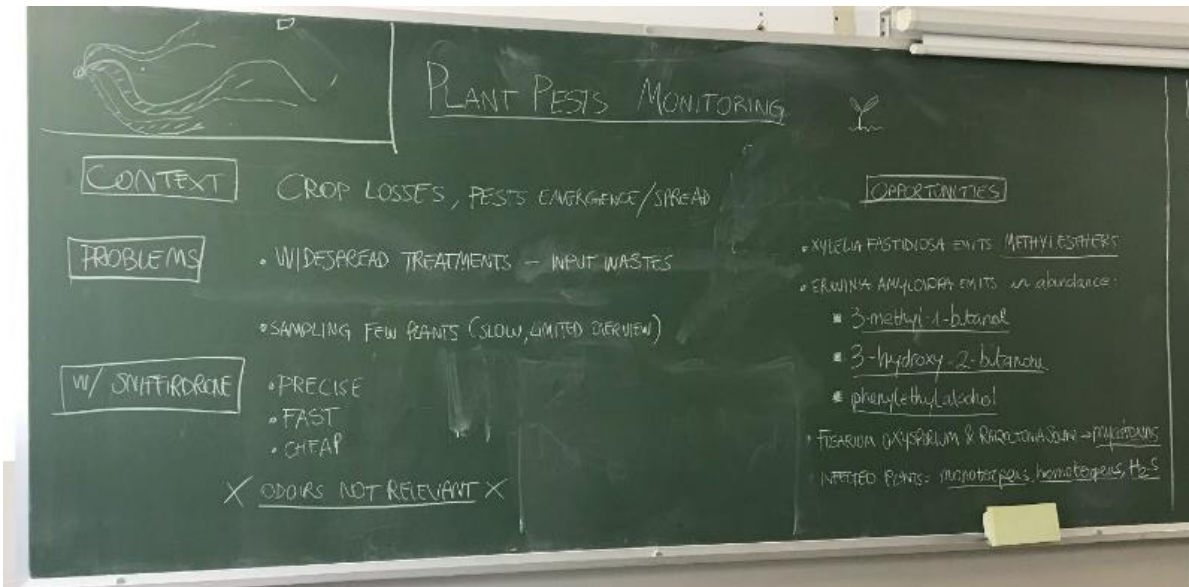 PLANT PESTS MONITORING
CONTEXT
CROP LOSSES, PESTS EMERGENCE/SPREAD
PROBLEMS
• WIDESPREAD TREATMENTS – INPUT WASTES
• SAMPLING FEW PLANTS (SLOW, LIMITED OVERVIEW)
W/ SNIFFIRDRONE
• PRECISE
• FAST
• CHEAP
X ODORS NOT RELEVANT X
OPPORTUNITIES
• XYLELIA FASTIDIOSA EMITS METHYL ESTHERS
• ERWINIA AMYLOVORA EMITS in abundance:
▪ 3-methyl-1-butanol
▪ 3-hydroxy-2-butanone
▪ phenylethyl alcohol
• FUSARIUM OXYSPORIUM & → mycotoxins
• INFECTED PLANTS: monoterpens, homoterpens, H2S